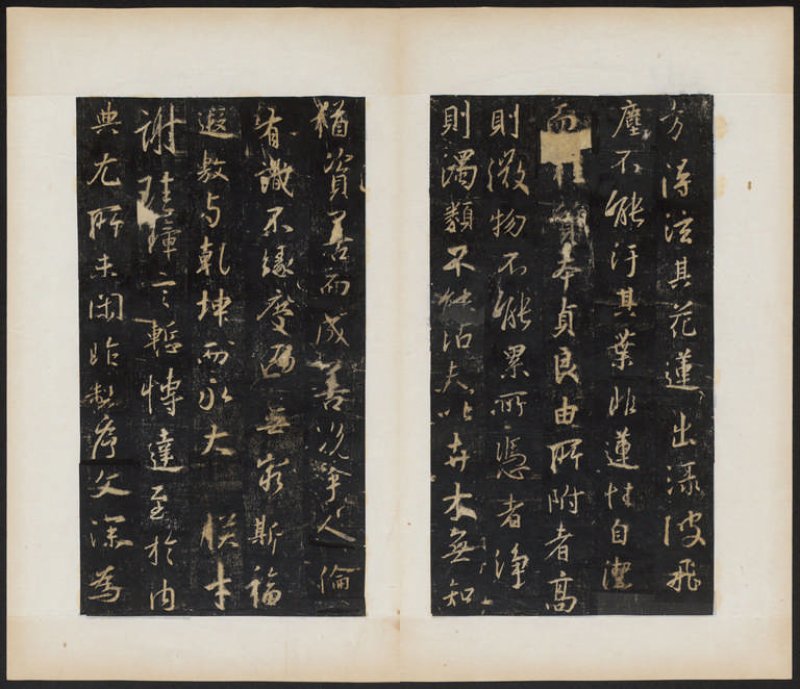 方得泫其花蓮出淥波飛
塵不能汙其葉非蓮性自潔
而桂質本貞良由所附者高
則微物不能累所憑者淨
則濁類不能沾夫以卉木無知
猶資善而成善況乎人倫
有識不緣慶無窮斯福
遐敷与乾坤而永大 朕才
謝珪璋言慙博達至於內
典尤所未閑昨製序文深為